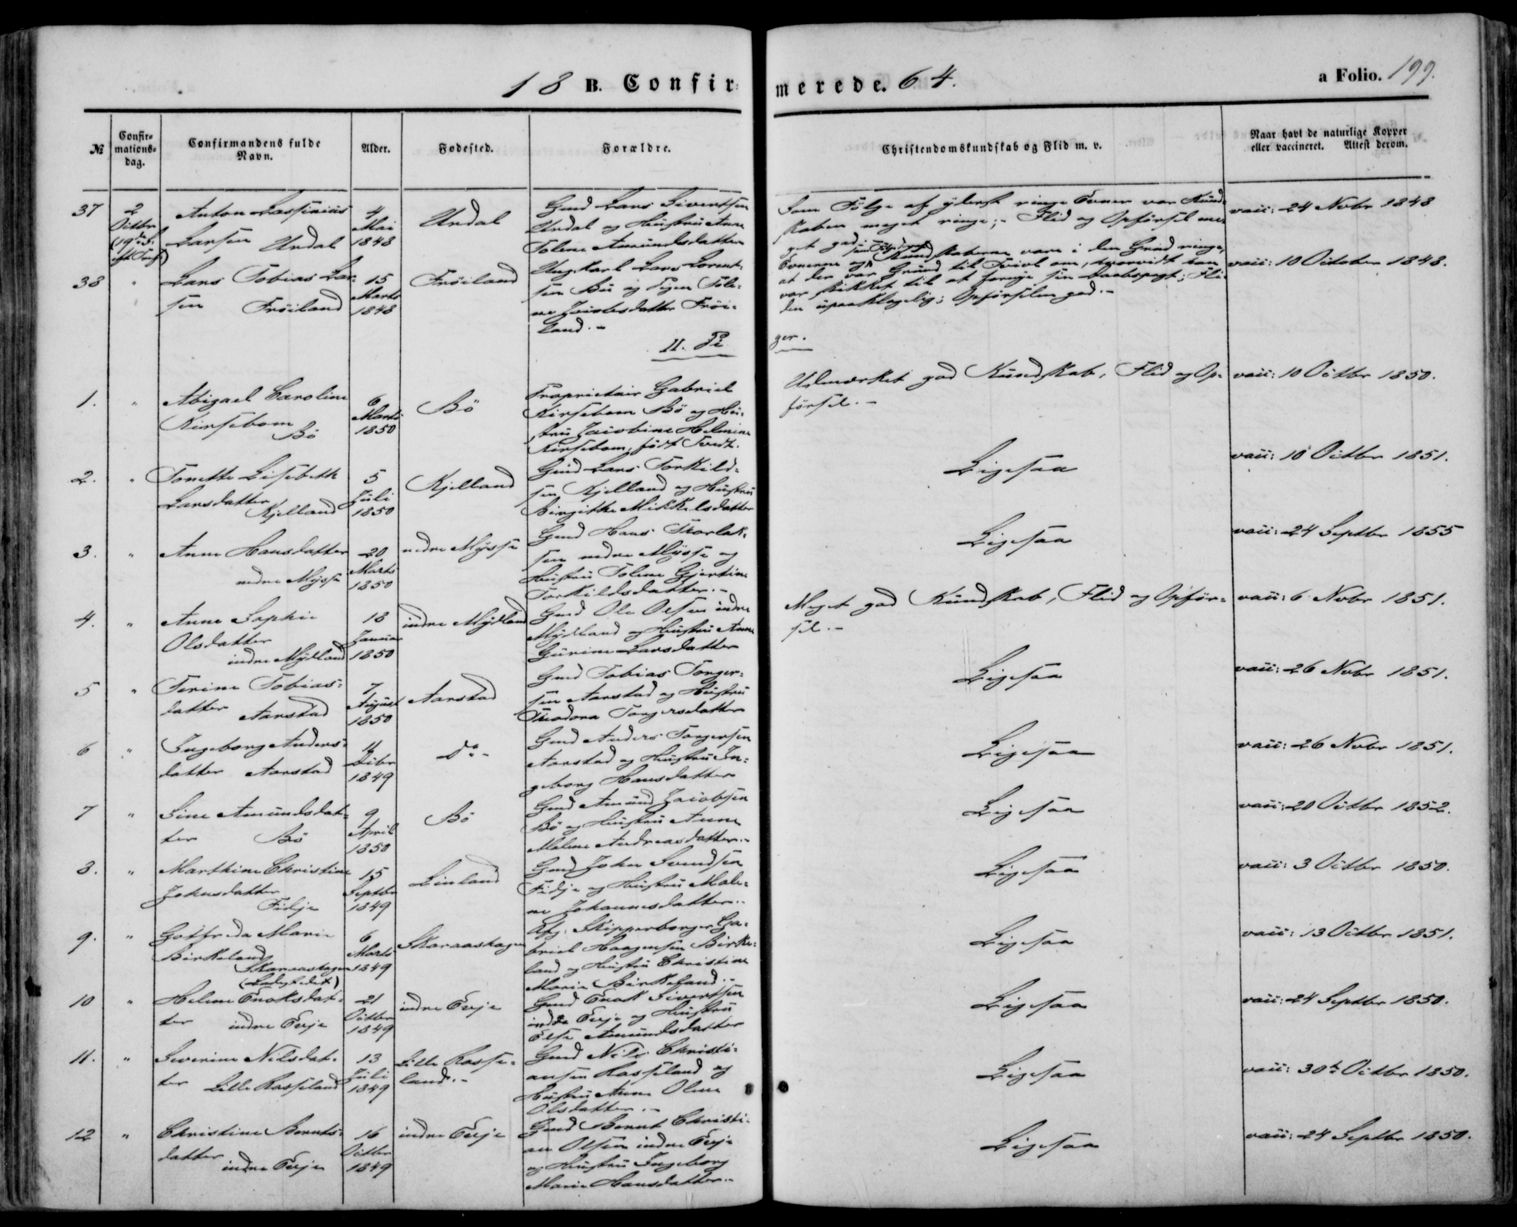 18 B. Confirmerede. 64.
a Folio. 199.
№
Confirmations-dag.
Confirmandens fulde Navn.
Alder.
Fødested.
Forældre.
Christendomskundskab og Flid m. v.
Naar havt de naturlige Kopper eller vaccineret. Attest derom.
37
2 Octbr
Anton
Larsen Urdal
4 Mai 1848
Urdal
Gmd Lars Sivertsen
Urdal og Hustru Anne
Tolene Amundsdatter
Som Følge af yderst ringe Evner var Kund-
skaben meget ringe; Flid og Opførsel me-
get god.
vacc: 24 Novbr 1848
38
"
Lars Tobias Lar-
sen Frøiland
15 Marts 1848
Frøiland
Ungkarl Lars Lorent-
sen Bø og Pigen Tole-
ne Jacobsdatter Frøi-
land.-
Evnerne og Kundskaberne vare i den Grad ringe,
at der var Grund til Tvivl om, hvorvidt han
var skikket til at forny sin Daabspagt; Fli-
den upaaklagelig; Opførselen god.-
vacc: 10 October 1848.
II. Pi
ger.
1.
"
Abigael Caroline
Kirsebom
Bø
6 Marts 1850
Bø
Proprietair Gabriel
Kirsebom Bø og Hu-
stru Jacobine Helmine
Kirsebom, født Tvedt.
Udmærket god Kundskab, Flid og Op-
førsel.-
vacc: 10 Octbr 1850.
2.
"
Tonette Lisebeth
Larsdatter
Kjelland
5 Juli 1850
Kjelland
Gmd Lars Torkild-
sen Kjelland og Hustru
Birgitte Mikkelsdatter
Ligesaa
vacc: 10 Octbr 1851.
3.
"
Anne Hansdatter
nedre Mysse
20 Marts 1850
nedre Mysse
Gmd Hans Thorlak-
sen nedre Mysse og
Hustru Tolene Gjertine
Torkildsdatter.-
Ligesaa
vacc: 24 Septbr 1855
4.
"
Anne Sophie
Olsdatter
indre Mydland
18 Januar 1850
indre Mydland
Gmd Ole Olsen indre
Mydland og Hustru Anne
Gurine Larsdatter
Meget god Kundskab, Flid og Opfør-
sel.-
vacc: 6 Novbr 1851.
5
"
Terine Tobias-
datter Aarstad
7 August 1850
Aarstad
Gmd Tobias Tonger-
sen Aarstad og Hustru
Theodora Tongersdatter
Ligesaa
vacc: 26 Novbr 1851.
6
"
Ingeborg Anders-
datter Aarstad
11 Decbr 1849
Do-
Gmd Anders Tongersen
Aarstad og Hustru In-
geborg Hansdatter
Ligesaa
vacc: 26 Novbr 1851.
7
"
Sine Amundsdat-
ter Bø
9 April 1850
Bø
Gmd Amund Jacobsen
Bø og Hustru Anne
Malene Andreasdatter.-
Ligesaa
vacc: 20 Octbr 1852.
8.
"
Marthine Christine
Johnsdatter
Fidje
15 Septbr 1849
Linland
Gmd John Svendsen
Fidje og Hustru Male-
ne Johannesdatter.
Ligesaa
vacc: 3 Octbr 1850.
9.
"
Marie
Birkeland
6 Marts 1849
Skipperborger Ga-
briel Haagensen Birke-
land og Hustru Christine
Marie Birkeland.-
Ligesaa
vacc: 13 Octbr 1851.
10
"
Helene Enoksdat-
ter indre Eeje
21 Octbr 1849
indre Eeje
Gmd Enok Sivertsen
indre Eeje og Hustru
Else Amundsdatter
Ligesaa
vacc: 24 Septbr 1850.
11.
"
Severine Nilsdat-
ter Lille Rosseland
13 Juli 1849
Lille Rosse-
land.-
Gmd Nils Christi-
ansen Rosseland og
Hustru Anne Oline
Olsdatter.-
Ligesaa
vacc: 30te Octbr 1850.
12
"
Christine Bernts-
datter
indre Eeje
16 Octbr 1849
indre Eeje
Gmd Bernt Christi-
an Olsen indre Eeje
og Hustru Ingeborg
Marie Hansdatter.-
Ligesaa
vacc: 24 Septbr 1850.